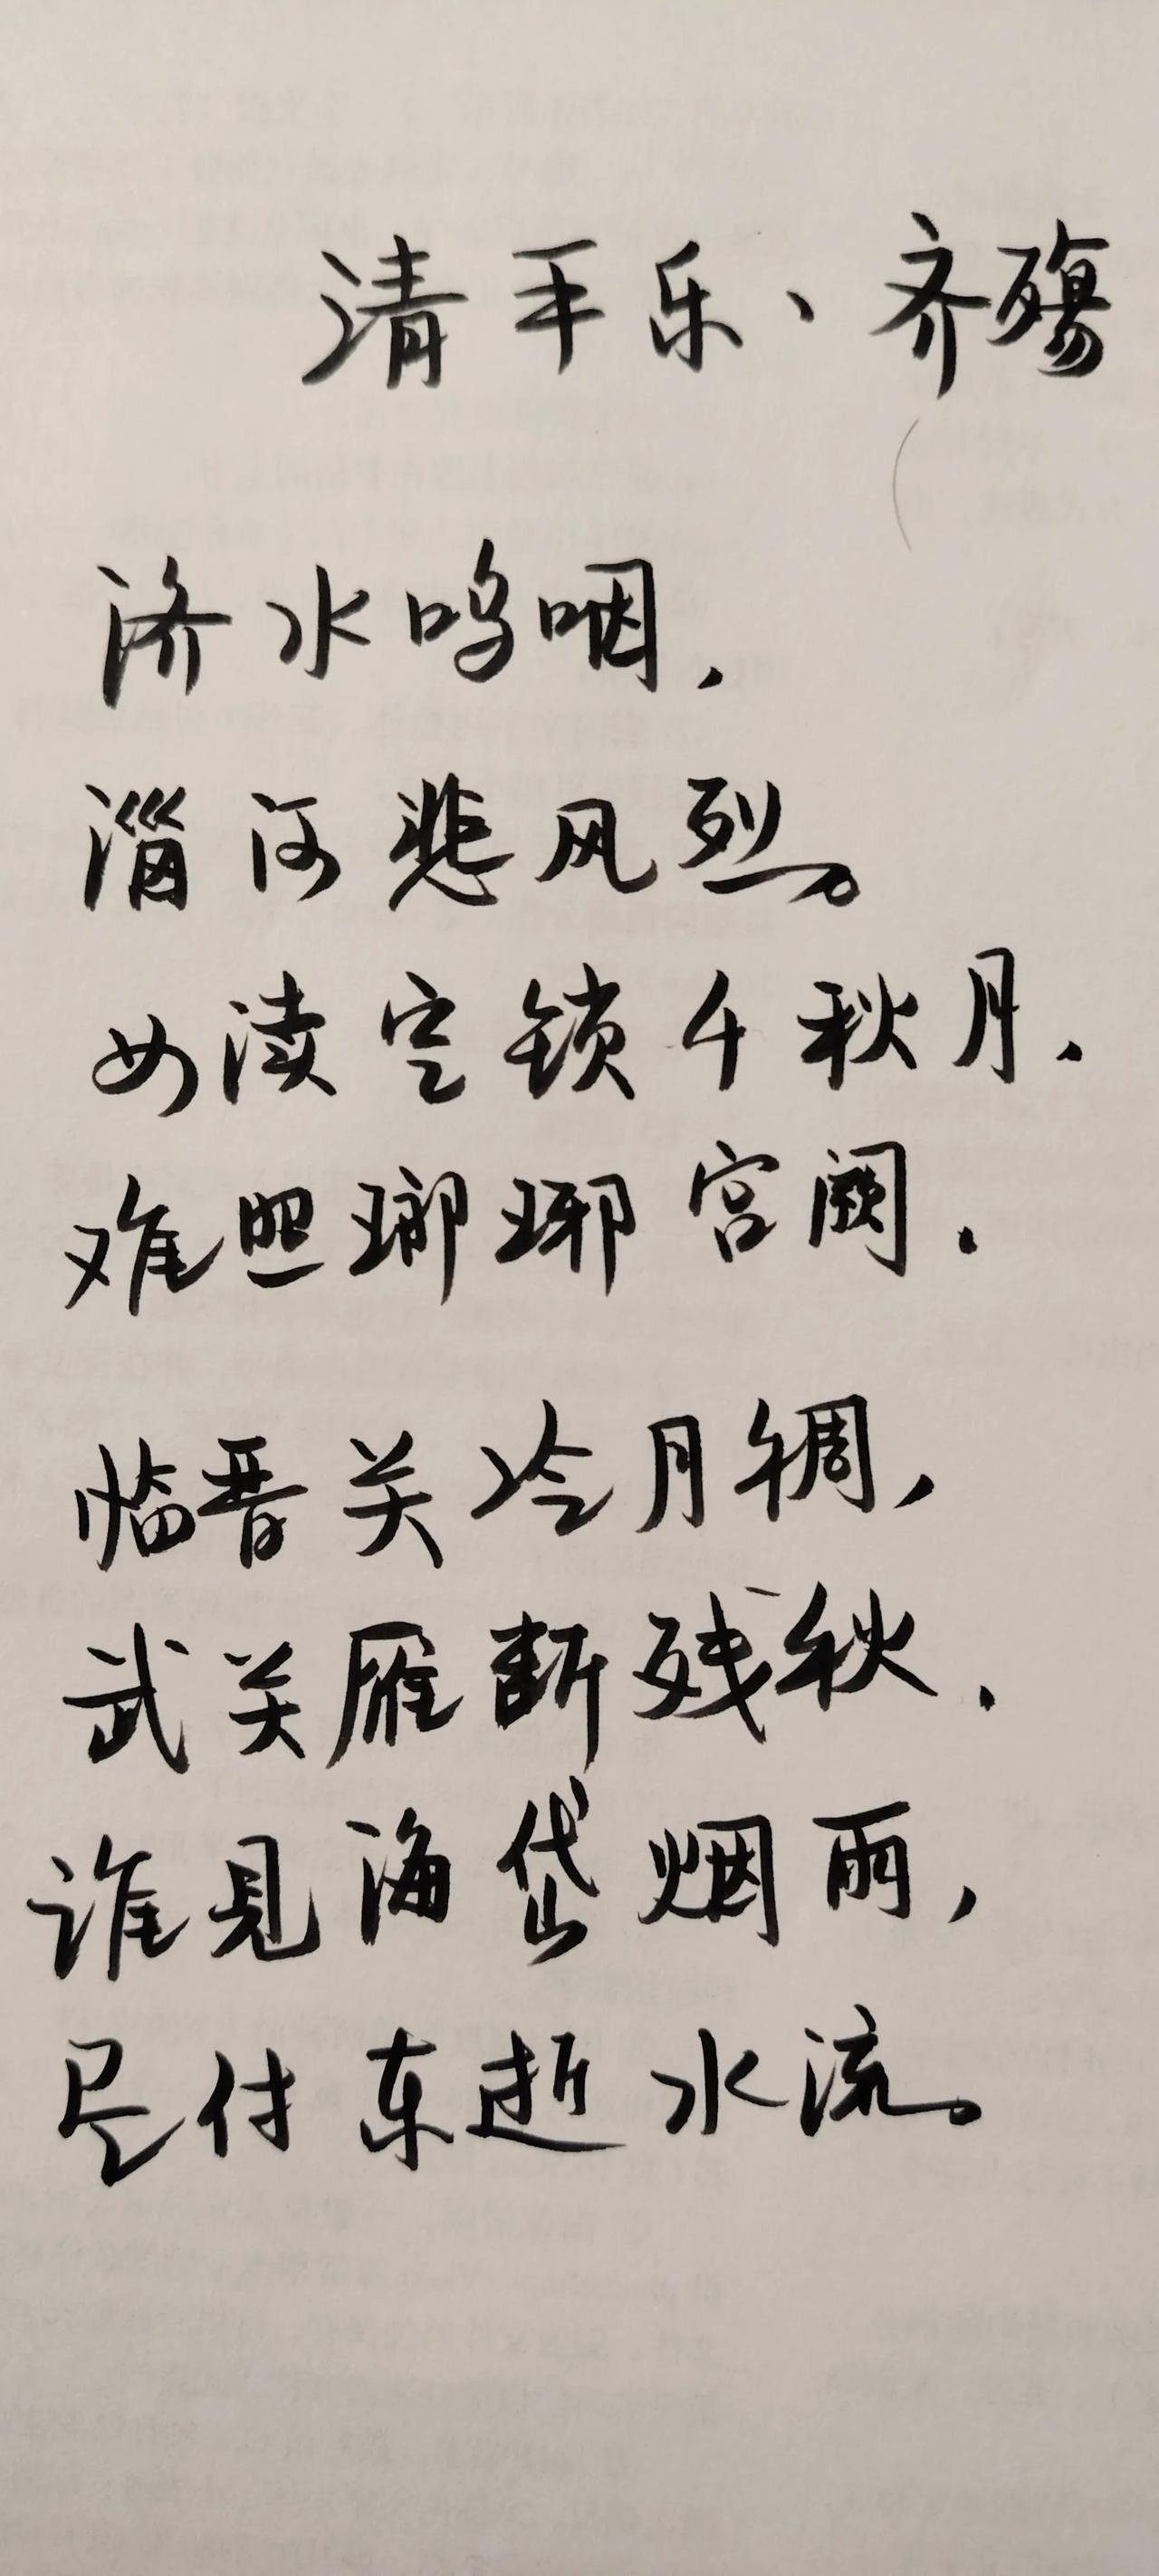 清平乐、齐殇
济水呜咽,
淄河悲风烈。
女渎空锁千秋月.
难照瑯琊宫阙.
临晋关冷月稠,
武关雁断残秋.
谁见海岱烟雨,
尽付东逝水流。